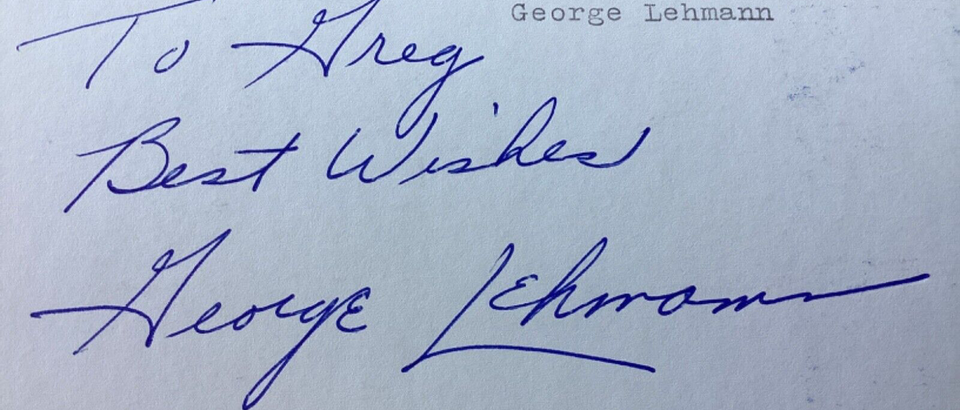 George Lehmann
To Greg
Best Wishes
George Lehmann